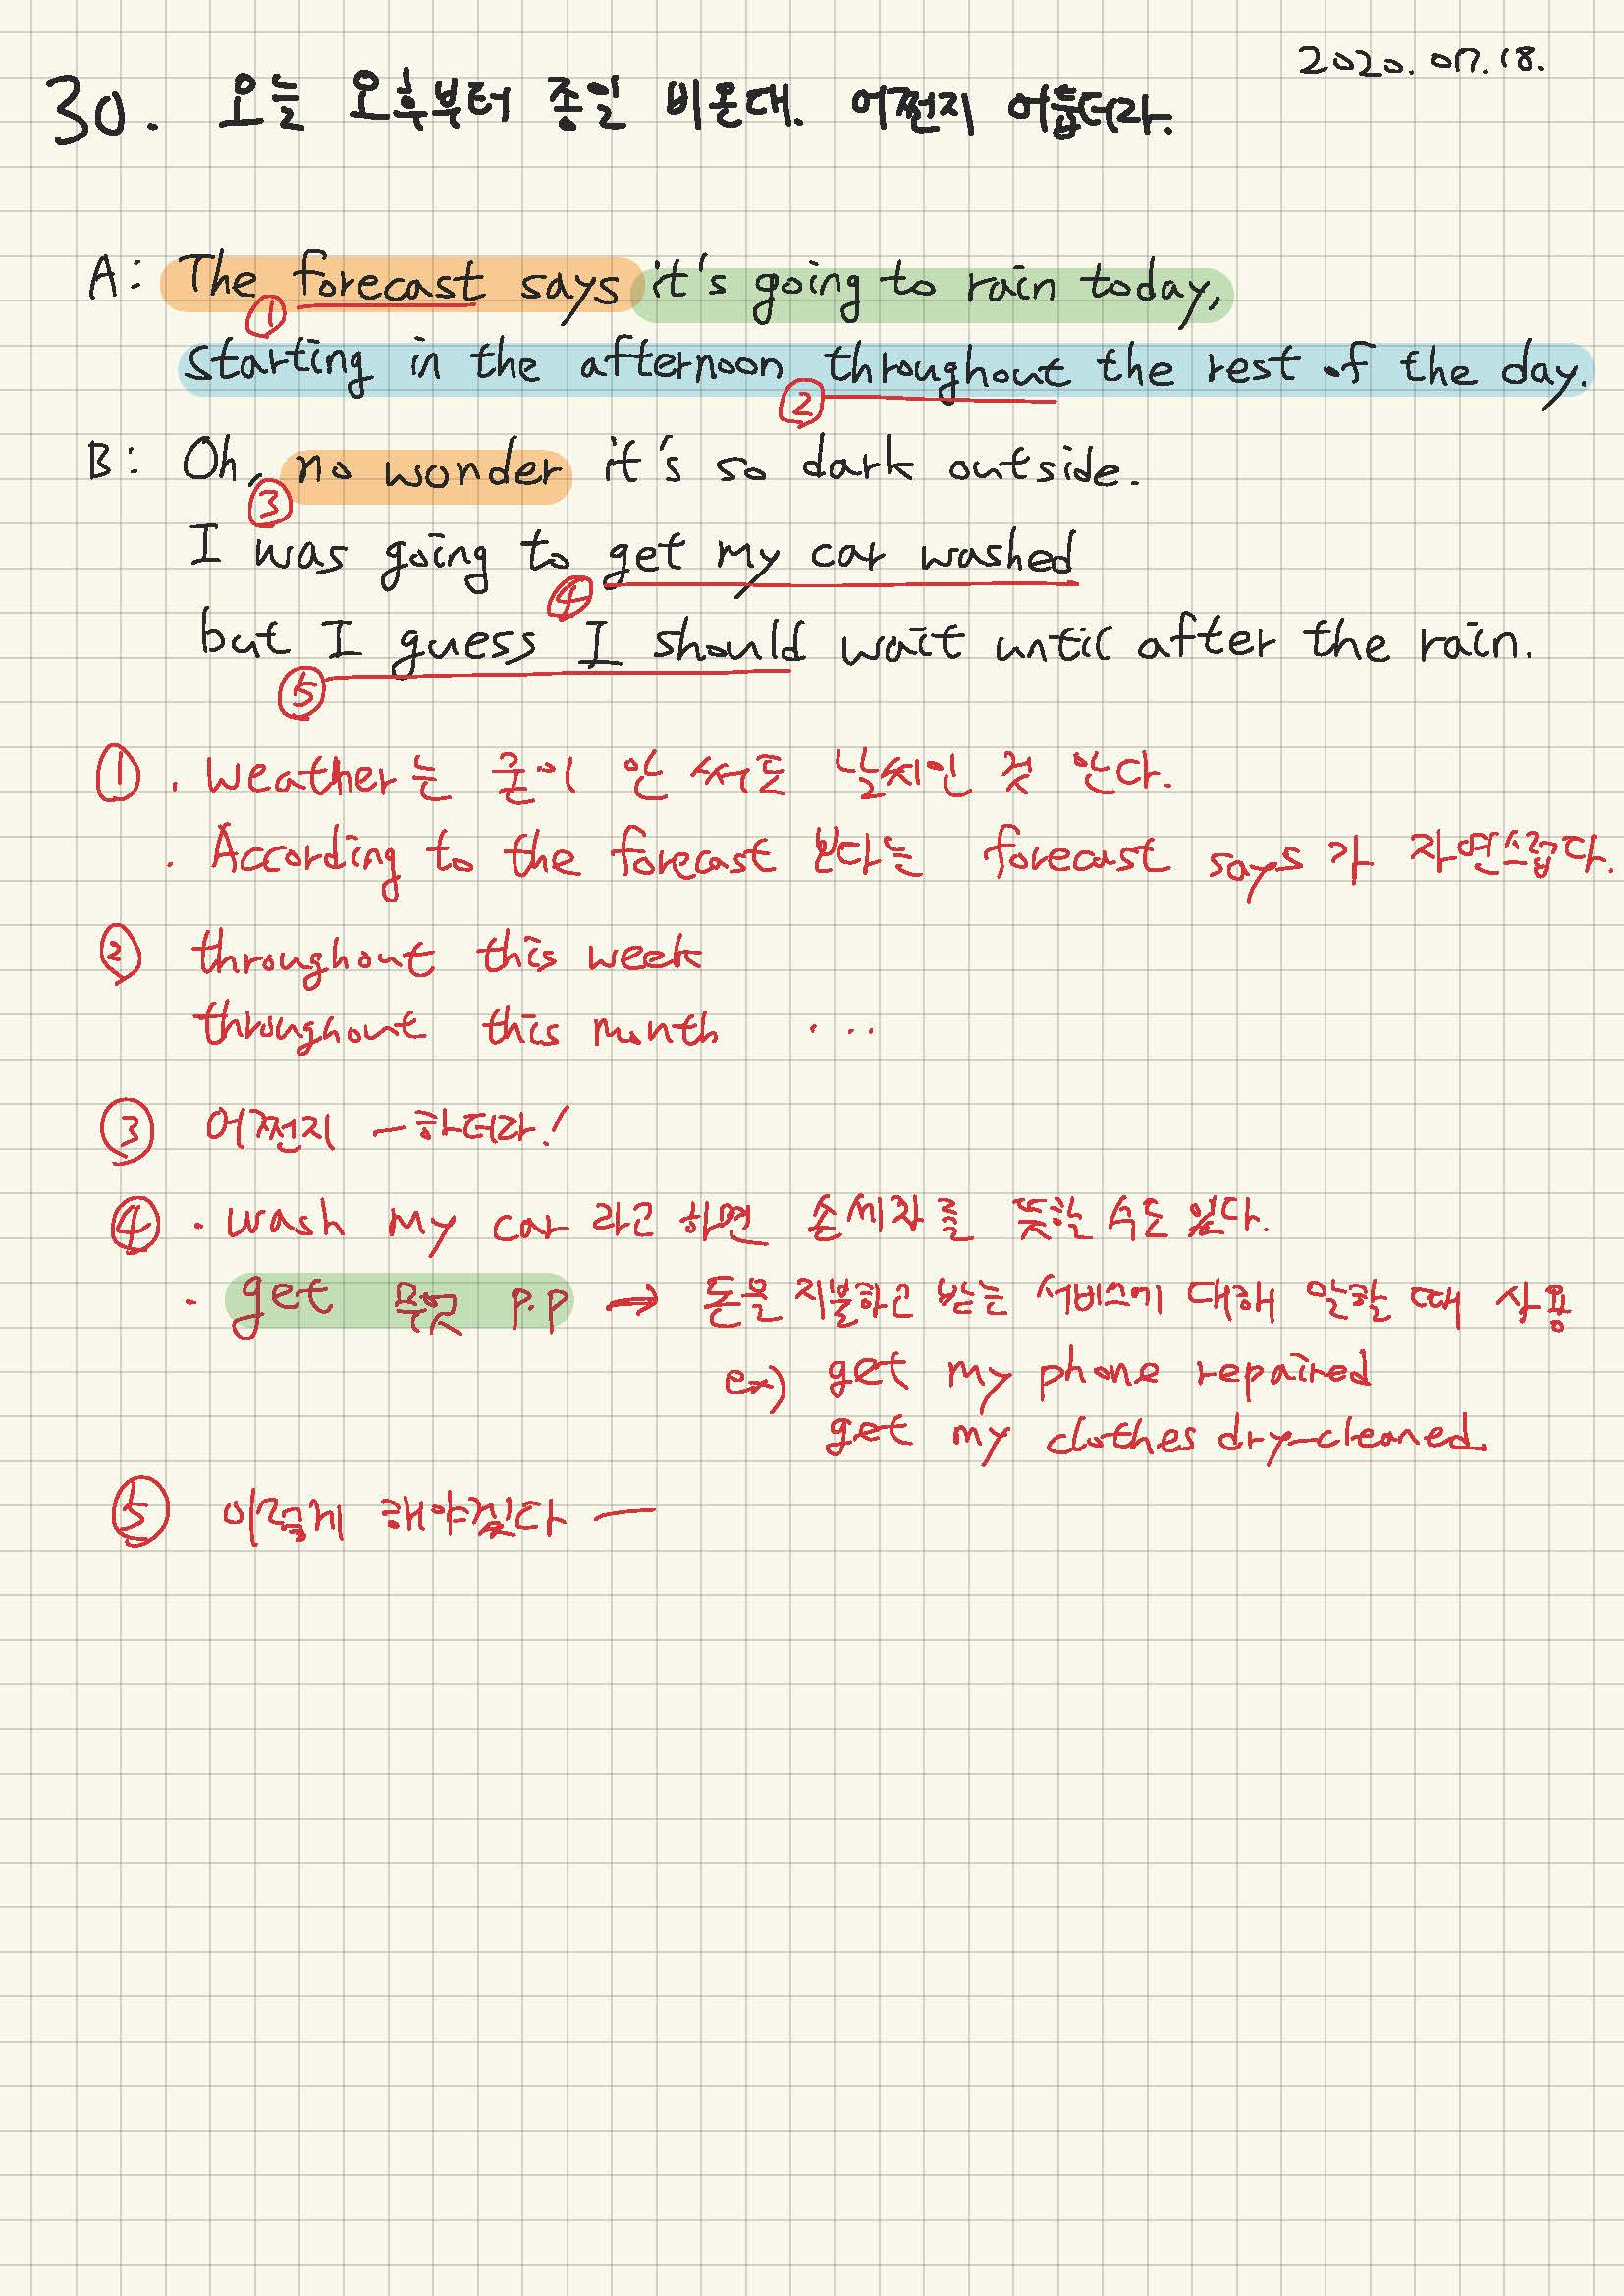 2020. 07. 18.
30. 오늘 오후부터 종일 비온대. 어쩐지 어둡더라.
A: The forecast says it's going to rain today,
①
starting in the afternoon throughout the rest of the day.
②
B: Oh, no wonder it's so dark outside.
③
I was going to get my car washed
④
but I guess I should wait until after the rain.
⑤
① . weather는 굳이 안 써도 날씨인 것 안다.
. According to the forecast 보다는 forecast says 가 자연스럽다.
② throughout this week
throughout this month ...
③ 어쩐지 ~하더라!
④ . wash my car 라고 하면 손세차를 뜻할 수도 있다.
. get 무엇 p.p → 돈을 지불하고 받는 서비스에 대해 말할 때 사용
ex) get my phone repaired
get my clothes dry-cleaned.
⑤ 이렇게 해야겠다 ㅡ